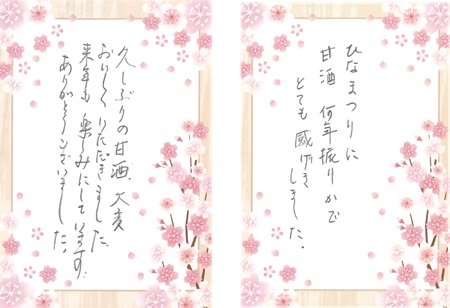 久しぶりの甘酒、大変
おいしくいただきました。
来年も楽しみにしています。
ありがとうございました。
ひなまつりに
甘酒 何年振りかで
とても感げき
しました。